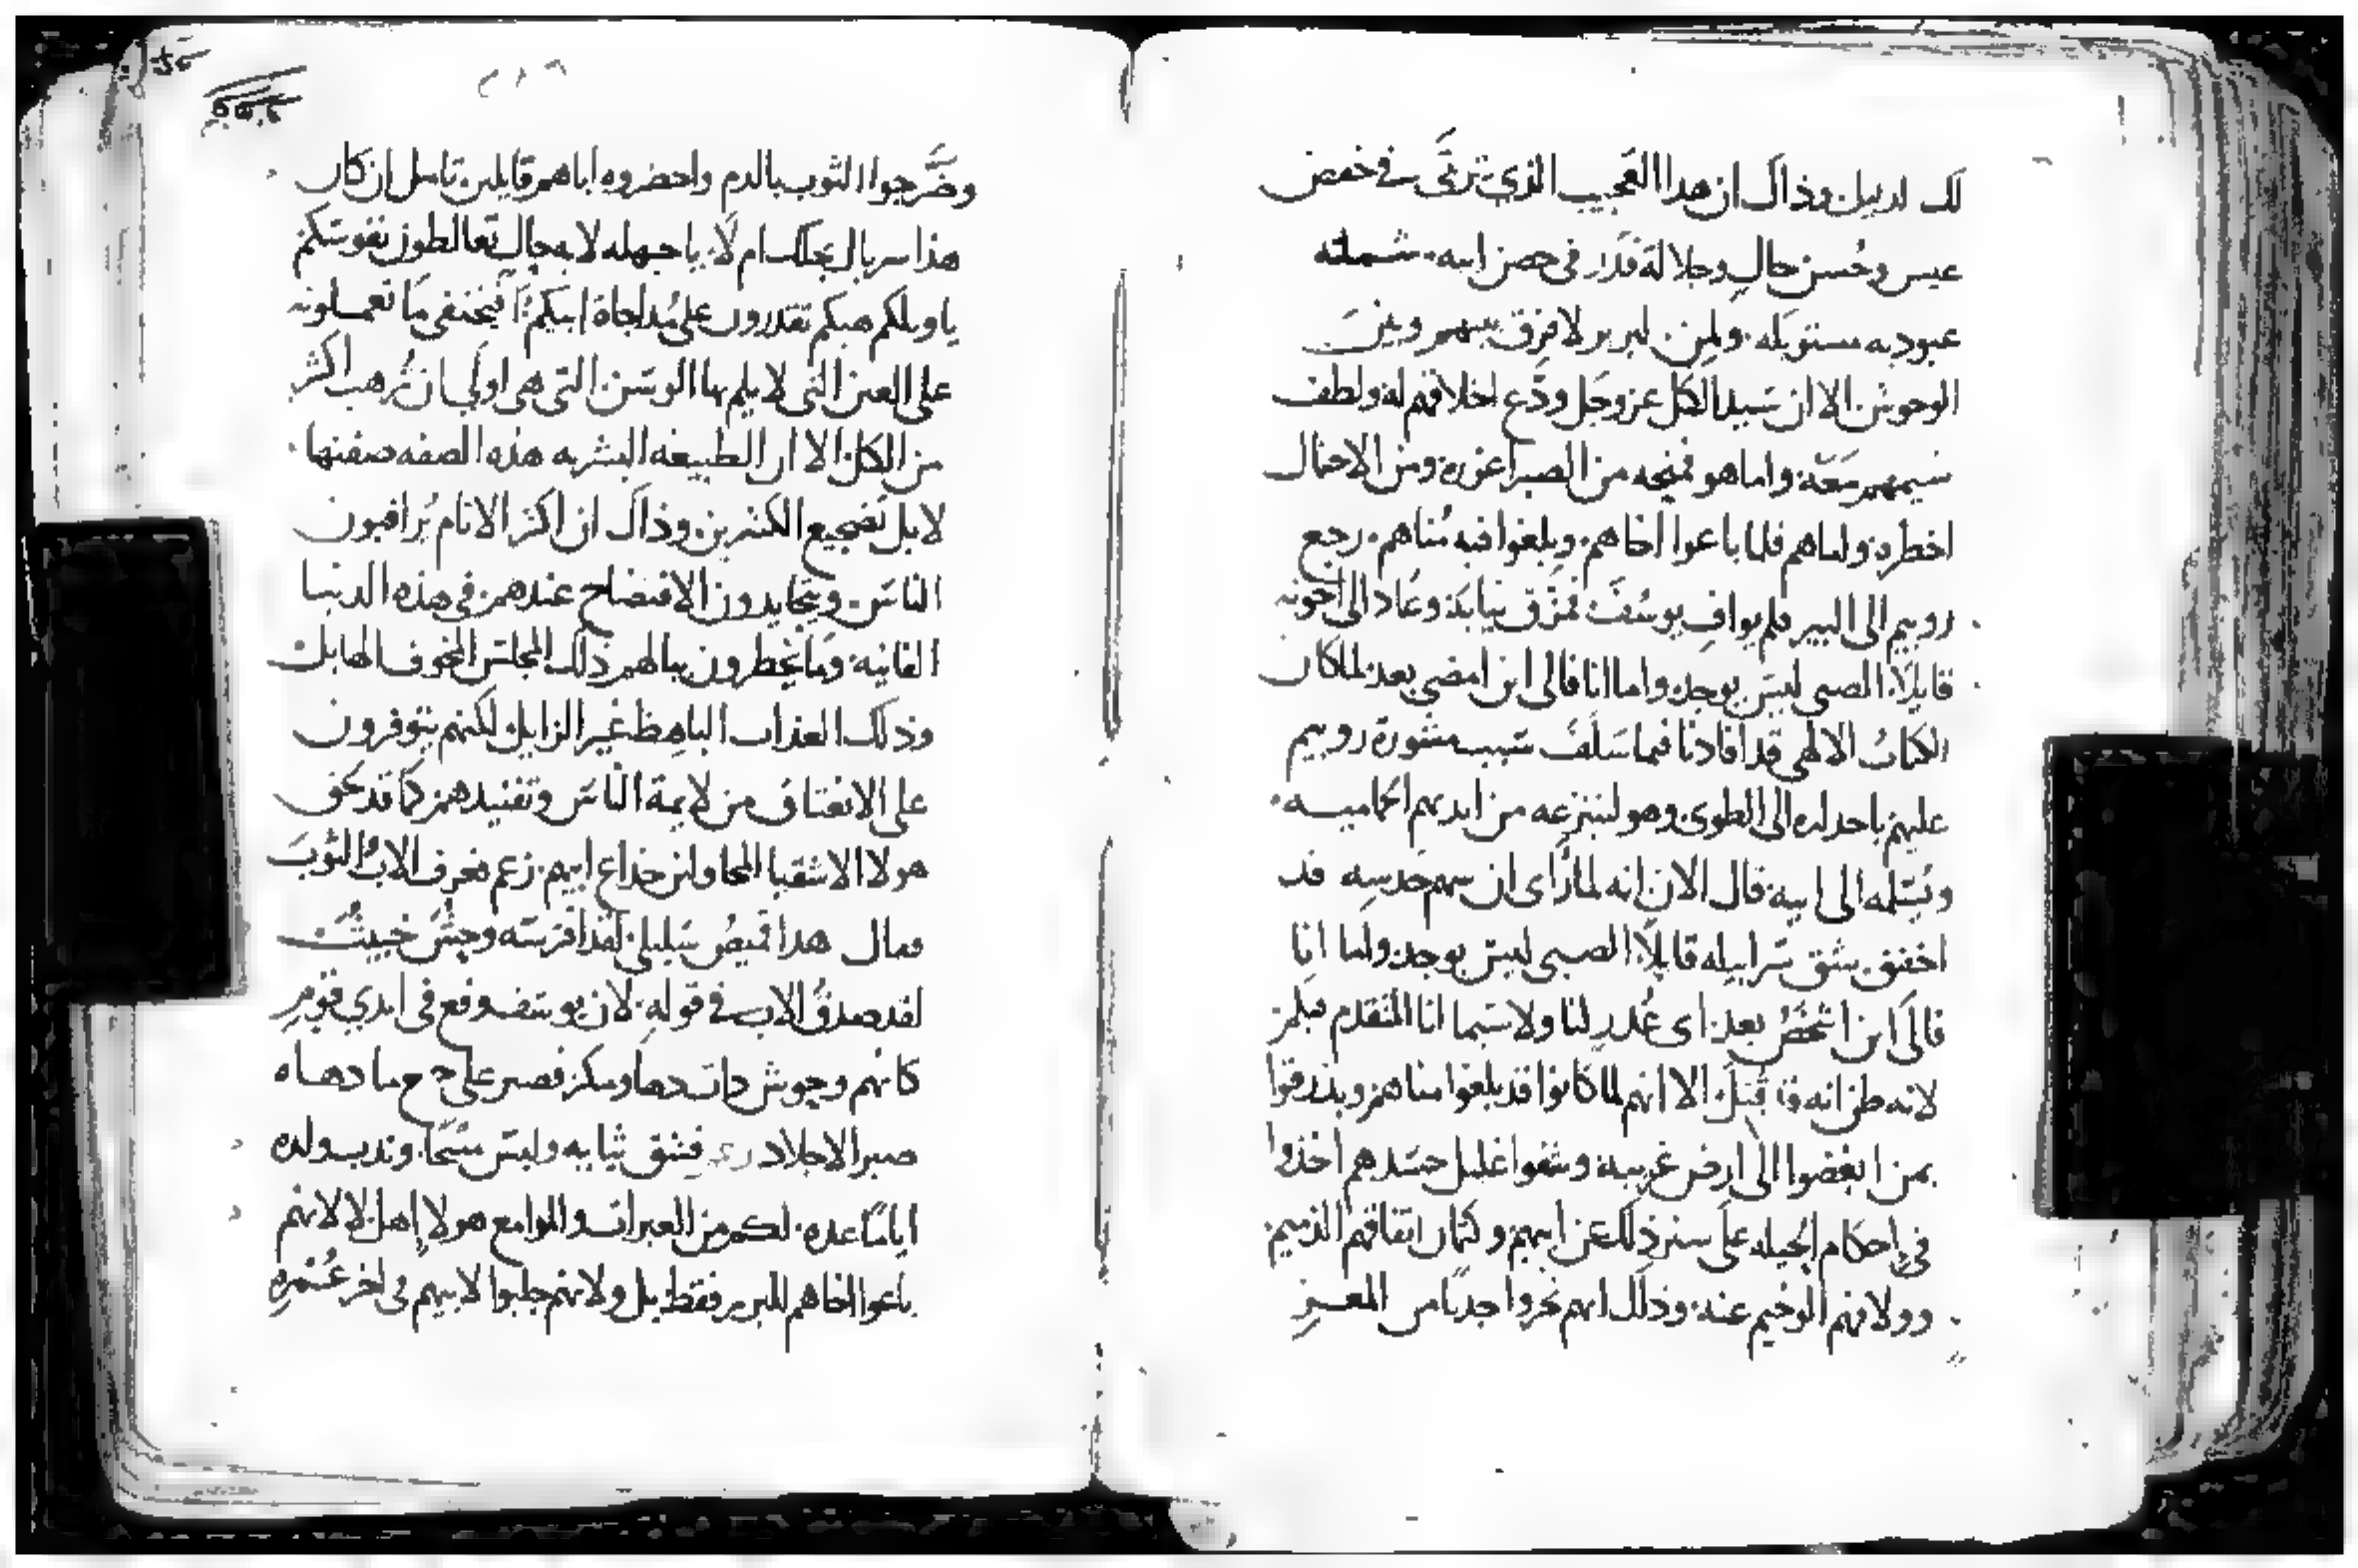 لك لديل وذاك ان هدا العجيب الذي تربَّى في خفض
عيس وحُسن حال وجلالة قدر في حصن ابيه شملته
عبوديه مستوبله ولمن لبربر لا فرق بينهم وبين
الوحوش الا ان سَيد الكل عز وجل ودَّع اخلاقهم له ولطف
شيمهم معَه واما هو فمنحه من الصبر اغزره ومن الاحتمال
اخطره واما هم فلما باعوا اخاهم وبلغوا فيه مُناهم رجع
روبيم الى البير فلم يوافِ يوسُفَ فمزق ثيابه وعاد الى اخوته
قايلًا الصبي ليس يوجد واما انا فالى اين امضي بعد لما كان
الكتابُ الالهي قد افادنا فيما سَلَفَ سَبب مشورة روبيم
عليهم باحداره الى الطوى وهو لينتزعه من ايديهم الحاميه
ويُسَلمه الى ابيه قال الان انه لما رَاى ان سهم حَدسِه قد
اخفق شق سَرابيله قايلًا الصبي ليسَ يوجد واما انا
فالَى اين اشخصُ بعد اى عُذرٍ لنا ولا سَيما انا المتقدم فيكم
لانه ظن انه قد قُتِلَ الا انهم لما كانوا قد بلغوا مناهم وبذرقوا
بمن ابغضوا الى ارض غريبه وشفوا غليل حسَدهم اخذوا
في احكام الحيله على ستر ذلك عن ابيهم وكتمان اتفاقهم الذميم
وولافهم الوخيم عنه وذلك انهم نحروا جديًا من المعز
وضَّرجوا الثوب بالدم واحضروه اباهم قايلين تامل ان كان
هذا سربال نجلك ام لَا يا جهله لا محال تغالطون نفوسَكم
يا ويلكم هبكم تقدرون على مُداجاة ابيكم اَفيختفي مَا تعملونه
على العين التي لا يلم بها الوسَن التي هي اولَى ان تُرهب اكثر
من الكل الا ان الطبيعه البشريه هذه الصفه صفتها
لا بل نَضجيع الكثيرين وذاك ان اكثر الانام يُراقبون
الناسَ ويتحايدون الافتضاح عندهم في هذه الدنيا
الفانيه ومَا يخطرون ببالهم ذلك المجلسَ المخوف الهايل
وذلك العذاب الباهِظ غير الزايل ولكنهم يتوفرون
على الانعتاق من لايمة الناسَ وتفنيدهم كما قد يحق
هولا الاشقيا المحاولين خداع ابيهم زعم فعرف الابُ الثوبَ
وقال هدا قميصُ سَليلي لقد افترسَه وحشٌ خبيثٌ
لقد صدقَ الاب في قولهِ لان يوسَف وقع في ايدي قومٍ
كانهم وحوش ذات دها ومكر فصبر على جميع ما دهاه
صبر الاجلاد فشق ثيابه ولبسَ مسَحًا وندب ولده
ايامًا عده لكم من العبرات والنوايح هولا اهل لا لانهم
باعوا اخاهم للبربر فقط بل ولانهم جلبوا لابيهم في اخر عُمره